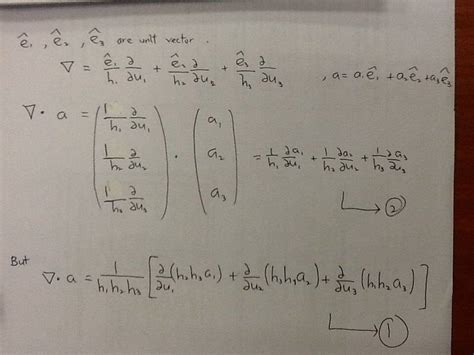 ê₁ , ê₂ , ê₃ are unit vector .
∇ = ê₁/h₁ ∂/∂u₁ + ê₂/h₂ ∂/∂u₂ + ê₃/h₃ ∂/∂u₃ , a = a₁ê₁ + a₂ê₂ + a₃ê₃
∇ · a = (1/h₁ ∂/∂u₁, 1/h₂ ∂/∂u₂, 1/h₃ ∂/∂u₃) · (a₁, a₂, a₃) = 1/h₁ ∂a₁/∂u₁ + 1/h₂ ∂a₂/∂u₂ + 1/h₃ ∂a₃/∂u₃
②
But
∇ · a = 1/h₁h₂h₃ [∂/∂u₁ (h₂h₃a₁) + ∂/∂u₂ (h₃h₁a₂) + ∂/∂u₃ (h₁h₂a₃)]
①